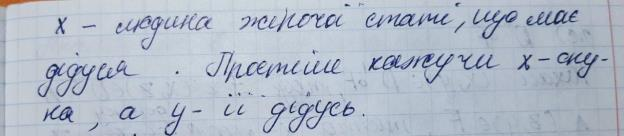 х – людина жіночої статі, що має
дідуся . Простіше кажучи х – ону-
ка, а у – її дідусь.